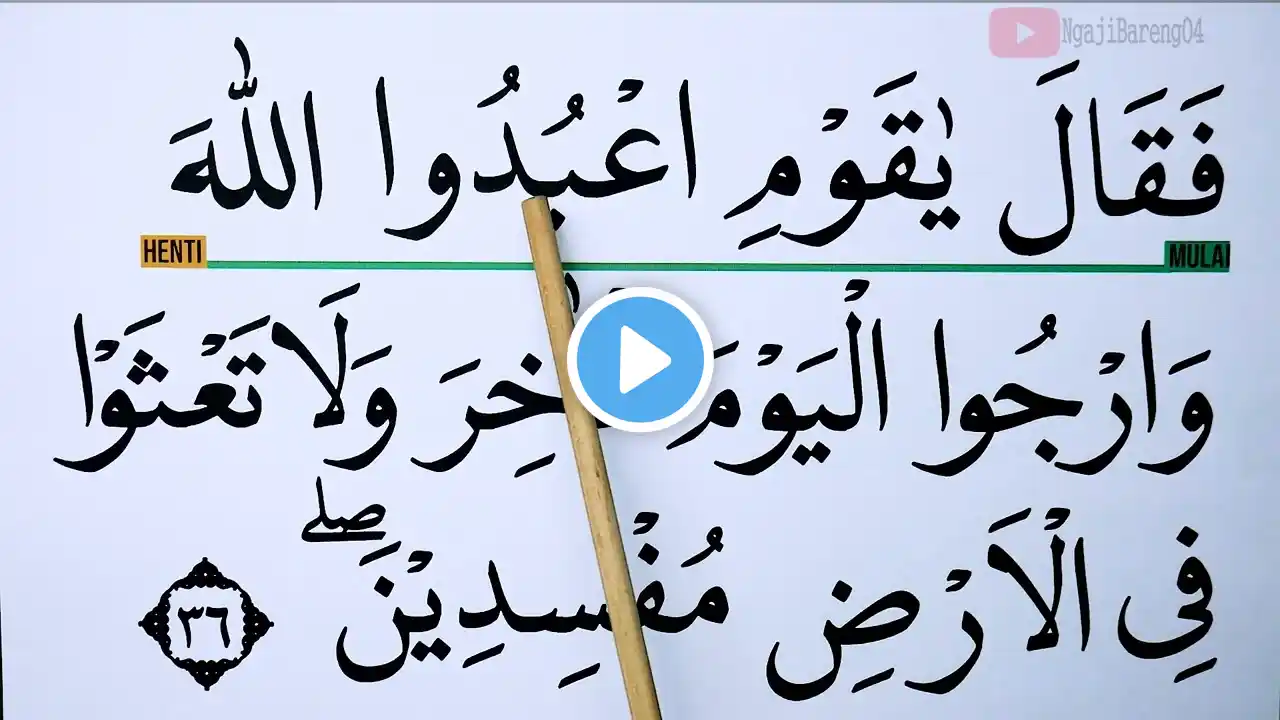 NgajiBareng04
فَقَالَ يٰقَوْمِ اعْبُدُوا اللّٰهَ
HENTI MULAI
وَارْجُوا الْيَوْمَ خِرَ وَلَا تَعْثَوْا
فِى الْاَرْضِ مُفْسِدِيْنَ ۖ ٣٦